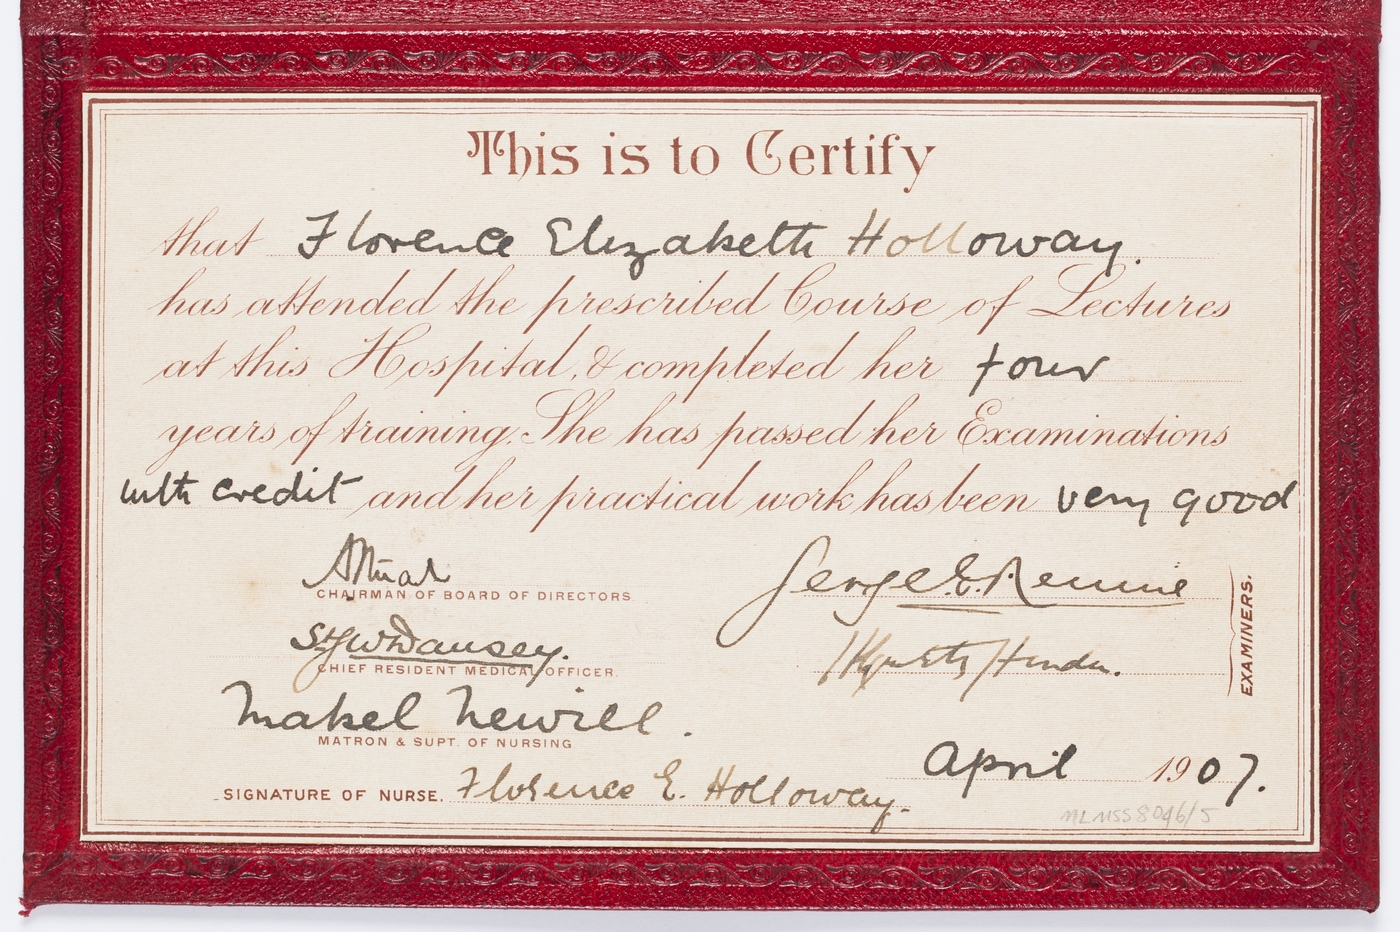 This is to Certify
that Florence Elizabeth Holloway.
has attended the prescribed Course of Lectures
at this Hospital, & completed her four
years of training. She has passed her Examinations
with credit and her practical work has been very good
CHAIRMAN OF BOARD OF DIRECTORS.
George E. Rennie
EXAMINERS.
Dansey.
CHIEF RESIDENT MEDICAL OFFICER.
Mabel Newill.
MATRON & SUPT. OF NURSING
April 1907.
SIGNATURE OF NURSE. Florence E. Holloway.
MLMSS8046/5